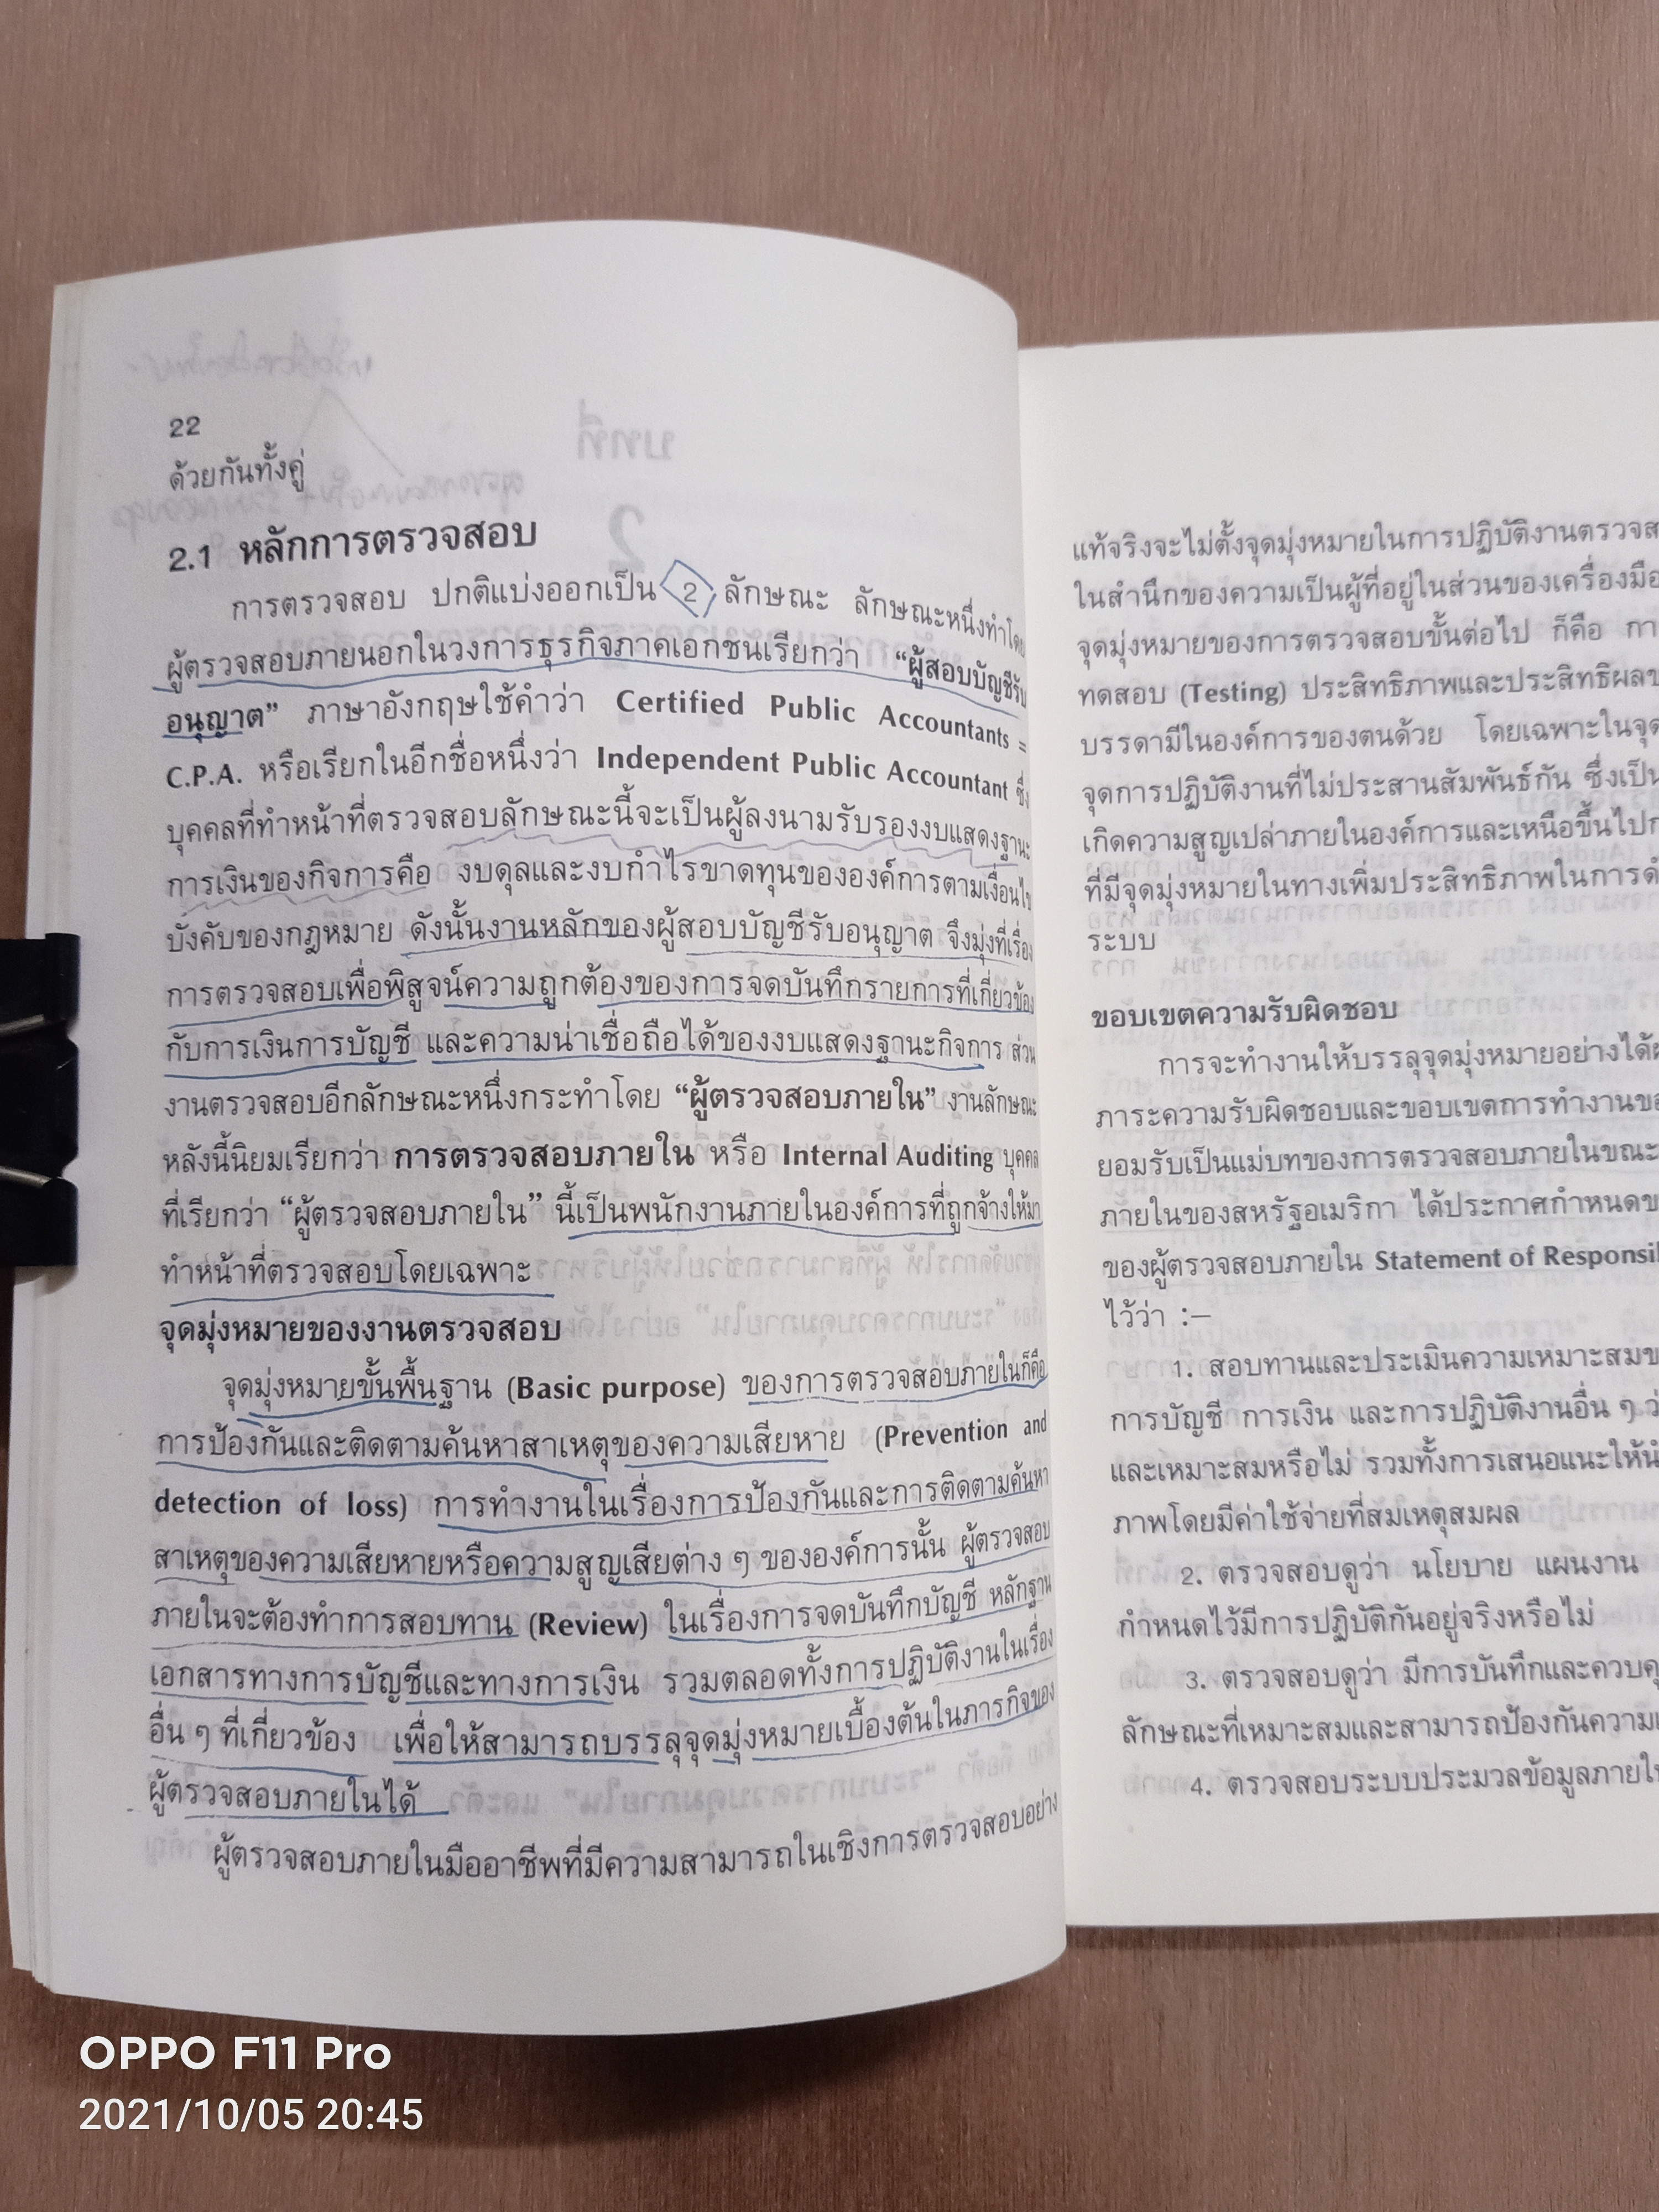 22
ด้วยกันทั้งคู่
2.1 หลักการตรวจสอบ
การตรวจสอบ ปกติแบ่งออกเป็น 2 ลักษณะ ลักษณะหนึ่งทำโดย
ผู้ตรวจสอบภายนอกในวงการธุรกิจภาคเอกชนเรียกว่า “ผู้สอบบัญชีรับ
อนุญาต” ภาษาอังกฤษใช้คำว่า Certified Public Accountants =
C.P.A. หรือเรียกในอีกชื่อหนึ่งว่า Independent Public Accountant ซึ่ง
บุคคลที่ทำหน้าที่ตรวจสอบลักษณะนี้จะเป็นผู้ลงนามรับรองงบแสดงฐานะ
การเงินของกิจการคือ งบดุลและงบกำไรขาดทุนขององค์การตามเงื่อนไข
บังคับของกฎหมาย ดังนั้นงานหลักของผู้สอบบัญชีรับอนุญาต จึงมุ่งที่เรื่อง
การตรวจสอบเพื่อพิสูจน์ความถูกต้องของการจดบันทึกรายการที่เกี่ยวข้อง
กับการเงินการบัญชี และความน่าเชื่อถือได้ของงบแสดงฐานะกิจการ ส่วน
งานตรวจสอบอีกลักษณะหนึ่งกระทำโดย “ผู้ตรวจสอบภายใน” งานลักษณะ
หลังนี้นิยมเรียกว่า การตรวจสอบภายใน หรือ Internal Auditing บุคคล
ที่เรียกว่า “ผู้ตรวจสอบภายใน” นี้เป็นพนักงานภายในองค์การที่ถูกจ้างให้มา
ทำหน้าที่ตรวจสอบโดยเฉพาะ
จุดมุ่งหมายของงานตรวจสอบ
จุดมุ่งหมายขั้นพื้นฐาน (Basic purpose) ของการตรวจสอบภายในก็คือ
การป้องกันและติดตามค้นหาสาเหตุของความเสียหาย (Prevention and
detection of loss) การทำงานในเรื่องการป้องกันและการติดตามค้นหา
สาเหตุของความเสียหายหรือความสูญเสียต่าง ๆ ขององค์การนั้น ผู้ตรวจสอบ
ภายในจะต้องทำการสอบทาน (Review) ในเรื่องการจดบันทึกบัญชี หลักฐาน
เอกสารทางการบัญชีและทางการเงิน รวมตลอดทั้งการปฏิบัติงานในเรื่อง
อื่น ๆ ที่เกี่ยวข้อง เพื่อให้สามารถบรรลุจุดมุ่งหมายเบื้องต้นในภารกิจของ
ผู้ตรวจสอบภายในได้
ผู้ตรวจสอบภายในมืออาชีพที่มีความสามารถในเชิงการตรวจสอบอย่าง
แท้จริงจะไม่ตั้งจุดมุ่งหมายในการปฏิบัติงานตรวจส
ในสำนึกของความเป็นผู้ที่อยู่ในส่วนของเครื่องมือ
จุดมุ่งหมายของการตรวจสอบขั้นต่อไป ก็คือ กา
ทดสอบ (Testing) ประสิทธิภาพและประสิทธิผลข
บรรดามีในองค์การของตนด้วย โดยเฉพาะในจุด
จุดการปฏิบัติงานที่ไม่ประสานสัมพันธ์กัน ซึ่งเป็น
เกิดความสูญเปล่าภายในองค์การและเหนือขึ้นไปก
ที่มีจุดมุ่งหมายในทางเพิ่มประสิทธิภาพในการดำ
ระบบ
ขอบเขตความรับผิดชอบ
การจะทำงานให้บรรลุจุดมุ่งหมายอย่างได้ผ
ภาระความรับผิดชอบและขอบเขตการทำงานขอ
ยอมรับเป็นแม่บทของการตรวจสอบภายในขณะ
ภายในของสหรัฐอเมริกา ได้ประกาศกำหนดข
ของผู้ตรวจสอบภายใน Statement of Responsi
ไว้ว่า :–
1. สอบทานและประเมินความเหมาะสมข
การบัญชี การเงิน และการปฏิบัติงานอื่น ๆ ว่
และเหมาะสมหรือไม่ รวมทั้งการเสนอแนะให้นำ
ภาพโดยมีค่าใช้จ่ายที่สมเหตุสมผล
2. ตรวจสอบดูว่า นโยบาย แผนงาน
กำหนดไว้มีการปฏิบัติกันอยู่จริงหรือไม่
3. ตรวจสอบดูว่า มีการบันทึกและควบคุ
ลักษณะที่เหมาะสมและสามารถป้องกันความเ
4. ตรวจสอบระบบประมวลข้อมูลภายใ
OPPO F11 Pro
2021/10/05 20:45